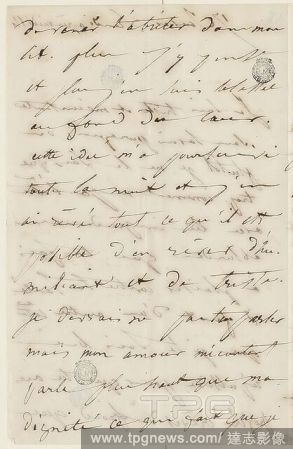 de venir t'abriter dans mon
lit. plus j'y pense
et plus j'en suis blessée
au fond du cœur.
cette idée m'a poursuivie
toute la nuit et j'en
ai rêvé tout ce qu'il est
possible d'en rêver d'hu
miliant et de triste.
je devrais ne pas t'en parler
mais mon amour mécontent
parle plus haut que ma
dignité ce qui fait que je
TPG
www.tpgnews.com / 達志影像